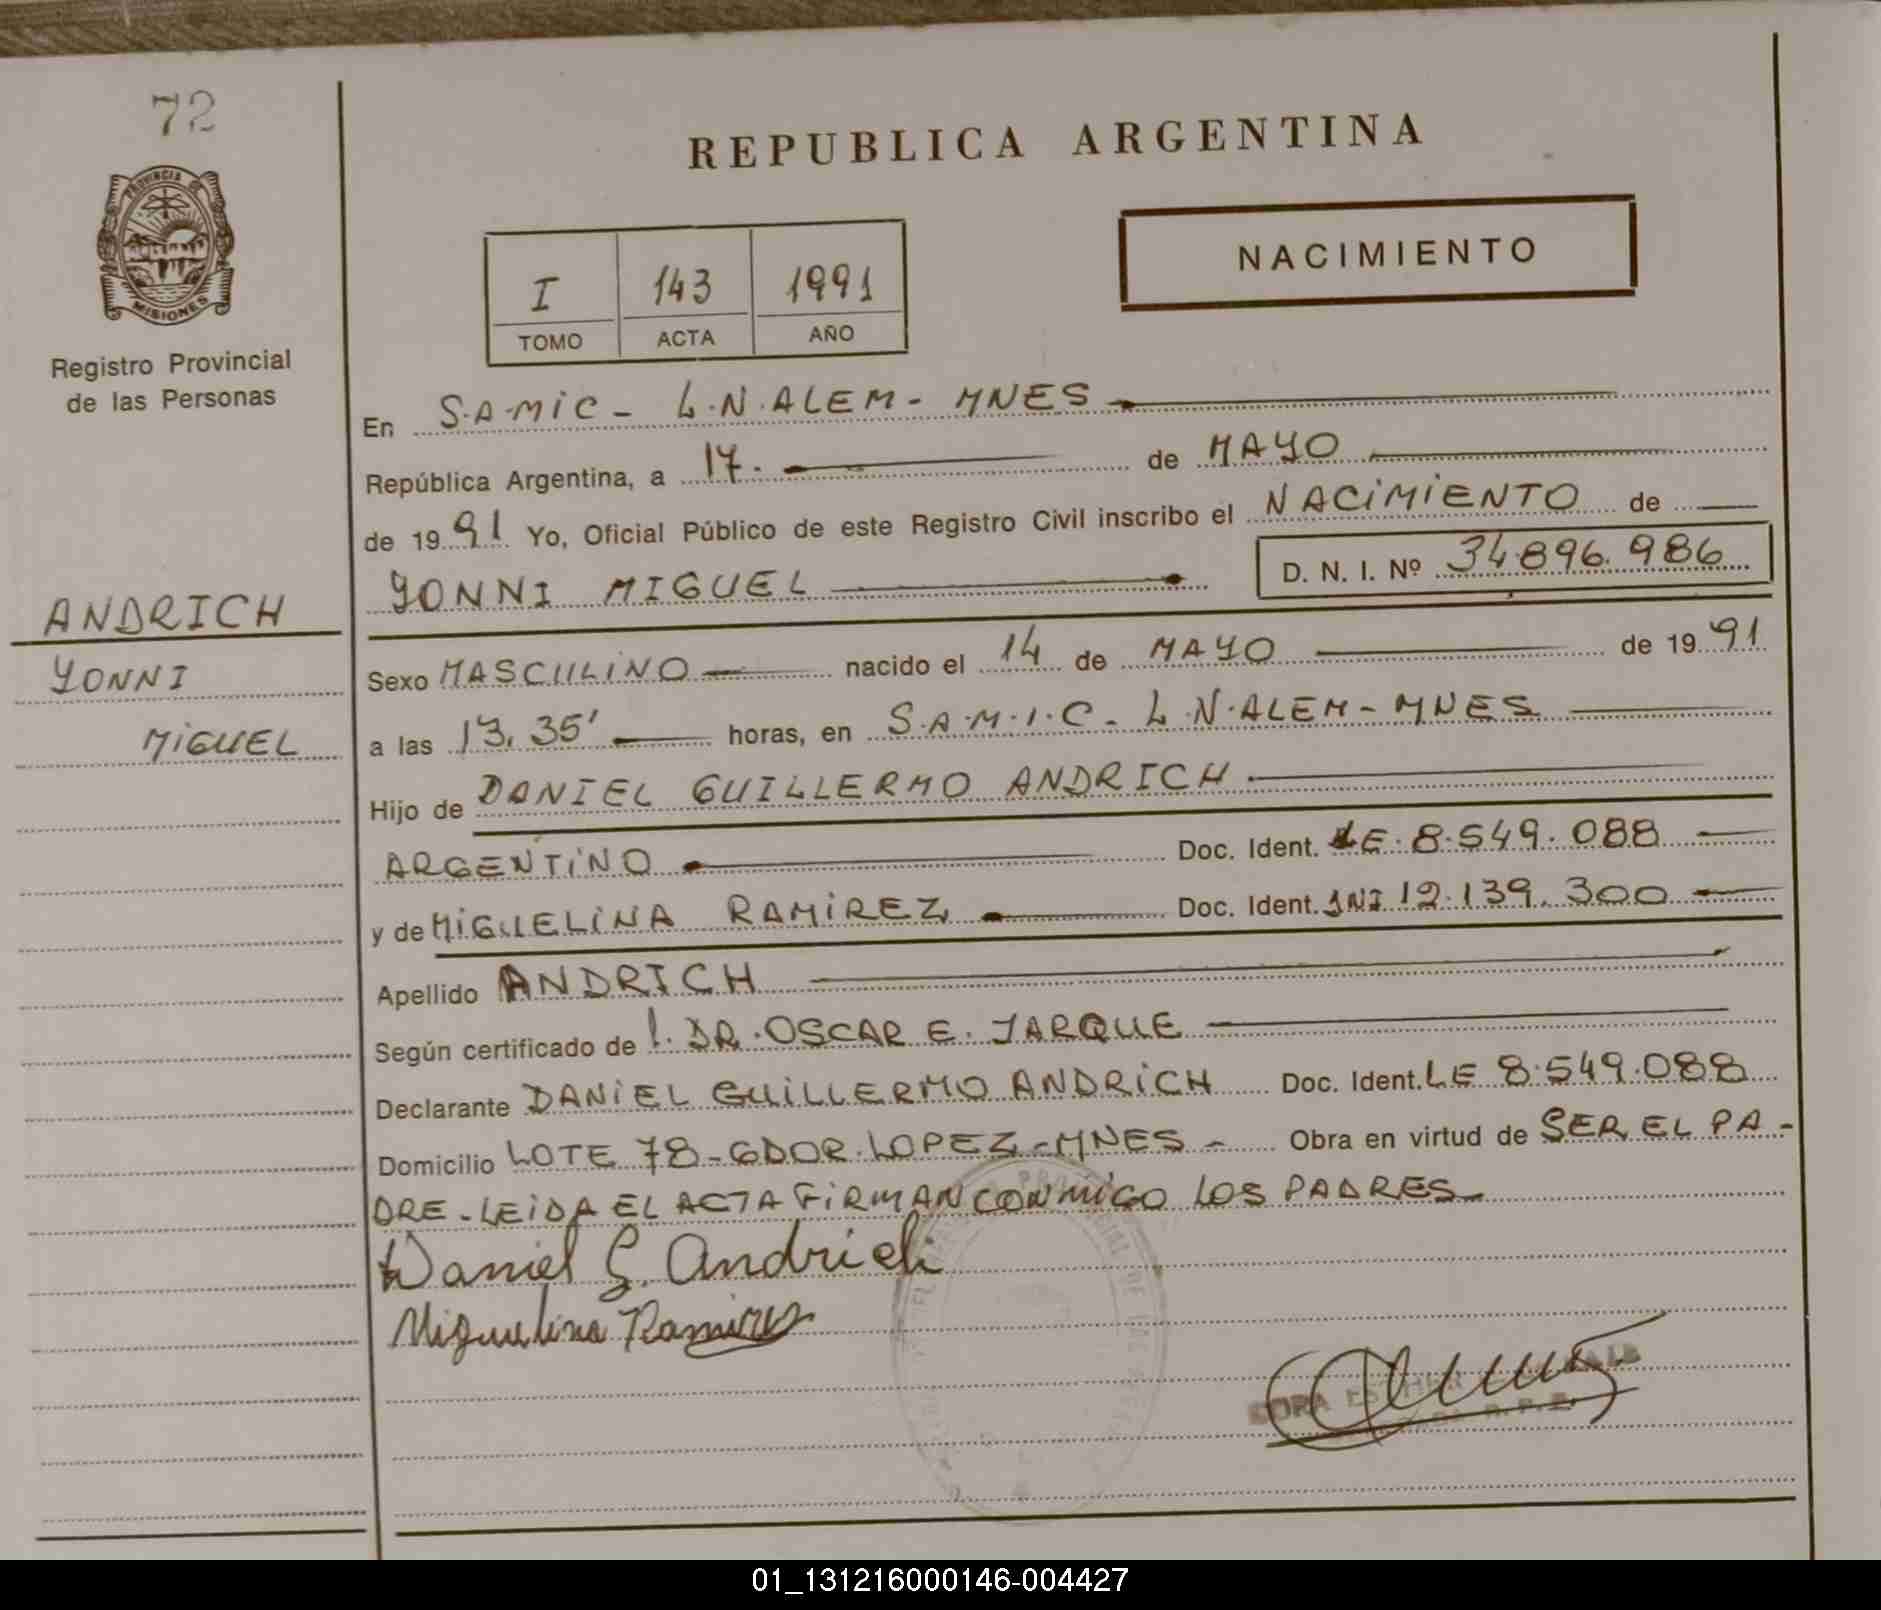 72
PROVINCIA DE
MISIONES
Registro Provincial
de las Personas
ANDRICH
YONNI
MIGUEL
REPUBLICA ARGENTINA
I 143 1991
TOMO ACTA AÑO
NACIMIENTO
En S.A.MIC - L.N.ALEM - MNES
República Argentina, a 17. de MAYO
de 1991 Yo, Oficial Público de este Registro Civil inscribo el NACIMIENTO de
YONNI MIGUEL D. N. I. Nº 34.896.986
Sexo MASCULINO nacido el 14 de MAYO de 1991
a las 13,35' horas, en S.A.M.I.C - L.N.ALEM - MNES
Hijo de DANIEL GUILLERMO ANDRICH
ARGENTINO Doc. Ident. LE.8.549.088
y de MIGUELINA RAMIREZ Doc. Ident. 12.139.300
Apellido ANDRICH
Según certificado de DR. OSCAR E. JARQUE
Declarante DANIEL GUILLERMO ANDRICH Doc. Ident. LE 8.549.088
Domicilio LOTE 78 - GDOR. LOPEZ - MNES - Obra en virtud de SER EL PA-
DRE - LEIDA EL ACTA FIRMAN CONMIGO LOS PADRES -
Daniel G. Andrich
Miguelina Ramirez
01_131216000146-004427